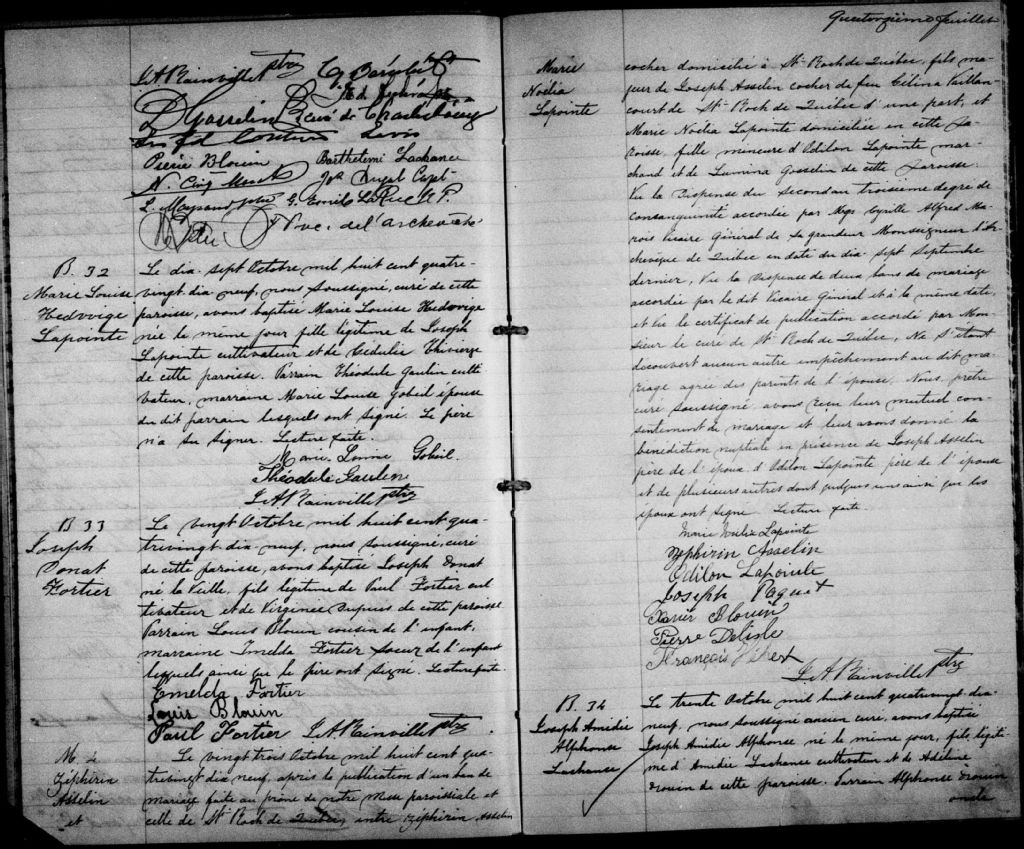 L A Rainville ptre
Curé de Charlesbourg
Lévis
Pierre Blouin Barthélémi Lachance
N. Cinq Mars Jos Dugal Capt
G. Emile LaRue N.P.
Proc. de l'archevêché
B. 32
Marie Louise
Hedwige
Lapointe
Le dix sept Octobre mil huit cent quatre-
vingt dix neuf, nous soussigné, curé de cette
paroisse, avons baptisé Marie Louise Hedwige
née le même jour fille légitime de Joseph
Lapointe cultivateur et de Cédulie Thivierge
de cette paroisse. Parrain Théodule Gaulin culti
vateur, marraine Marie Louise Gobeil épouse
du dit parrain lesquels ont signé. Le père
n'a su signer. Lecture faite.
Marie Louise Gobeil
Théodule Gaulin
L A Rainville ptre
B 33
Joseph
Donat
Fortier
Le vingt Octobre mil huit cent qua-
trevingt dix neuf, nous soussigné, curé
de cette paroisse, avons baptisé Joseph Donat
né la Veille, fils légitime de Paul Fortier cul
tivateur et de Virginie Dupuis de cette paroisse
Parrain Louis Blouin cousin de l'enfant,
marraine Imelda Fortier soeur de l'enfant
lesquels ainsi que le père ont signé. Lecture faite.
Emelda Fortier
Louis Blouin
Paul Fortier L A Rainville ptre
M 4
Zéphirin
Asselin
et
Le vingt trois Octobre mil huit cent qua-
trevingt dix neuf, après la publication d'un ban de
mariage faite au prône de notre Messe paroissiale et
celle de St Roch de Québec, entre Zéphirin Asselin
Quatorzième feuillet
Marie
Noëlia
Lapointe
cocher domicilié à St Roch de Québec, fils ma-
jeur de Joseph Asselin cocher de feu Célina Vaillan-
court de St Roch de Québec d'une part, et
Marie Noëlia Lapointe domiciliée en cette pa-
roisse, fille mineure d'Odilon Lapointe mar-
chand et de Lumina Gosselin de cette paroisse.
Vu la Dispense du second au troisième degré de
consanguinité accordée par Mgr Cyrille Alfred Ma-
rois Vicaire Général de Sa grandeur Monseigneur l'Ar-
chevêque de Québec en date du dix sept Septembre
dernier, Vu la Dispense de deux bans de mariage
accordée par le dit Vicaire Général et à la même date,
et Vu le certificat de publication accordé par Mon-
sieur le curé de St Roch de Québec, Ne s'étant
découvert aucun autre empêchement au dit ma-
riage agréé des parents de l'épouse. Nous, prêtre
curé soussigné, avons reçu leur mutuel con-
sentement de mariage et leur avons donné la
bénédiction nuptiale en présence de Joseph Asselin
père de l'époux, d'Odilon Lapointe père de l'épouse
et de plusieurs autres dont quelques uns ainsi que les
époux ont signé. Lecture faite.
Marie Noëlia Lapointe
Zéphirin Asselin
Odilon Lapointe
Joseph Paquet
Xavier Blouin
Pierre Delisle
François Hébert
L A Rainville ptre
B. 34
Joseph Amédée
Alphonse
Lachance
Le trente Octobre mil huit cent quatrevingt dix-
neuf, nous soussigné ancien curé, avons baptisé
Joseph Amédée Alphonse né le même jour, fils légiti-
me d'Amédée Lachance cultivateur et de Adéline
Drouin de cette paroisse. Parrain Alphonse Drouin
oncle